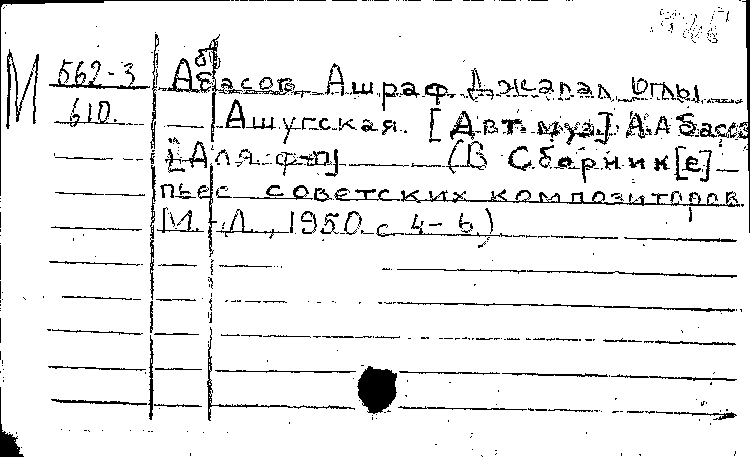 М 562-3 Аббасов, Ашраф Джалал оглы
610. Ашугская. [Авт. муз.] А. Аббасов
[Для ф-п] (В Сборник[е]
пьес советских композиторов.
М.-Л., 1950. с 4-6.)